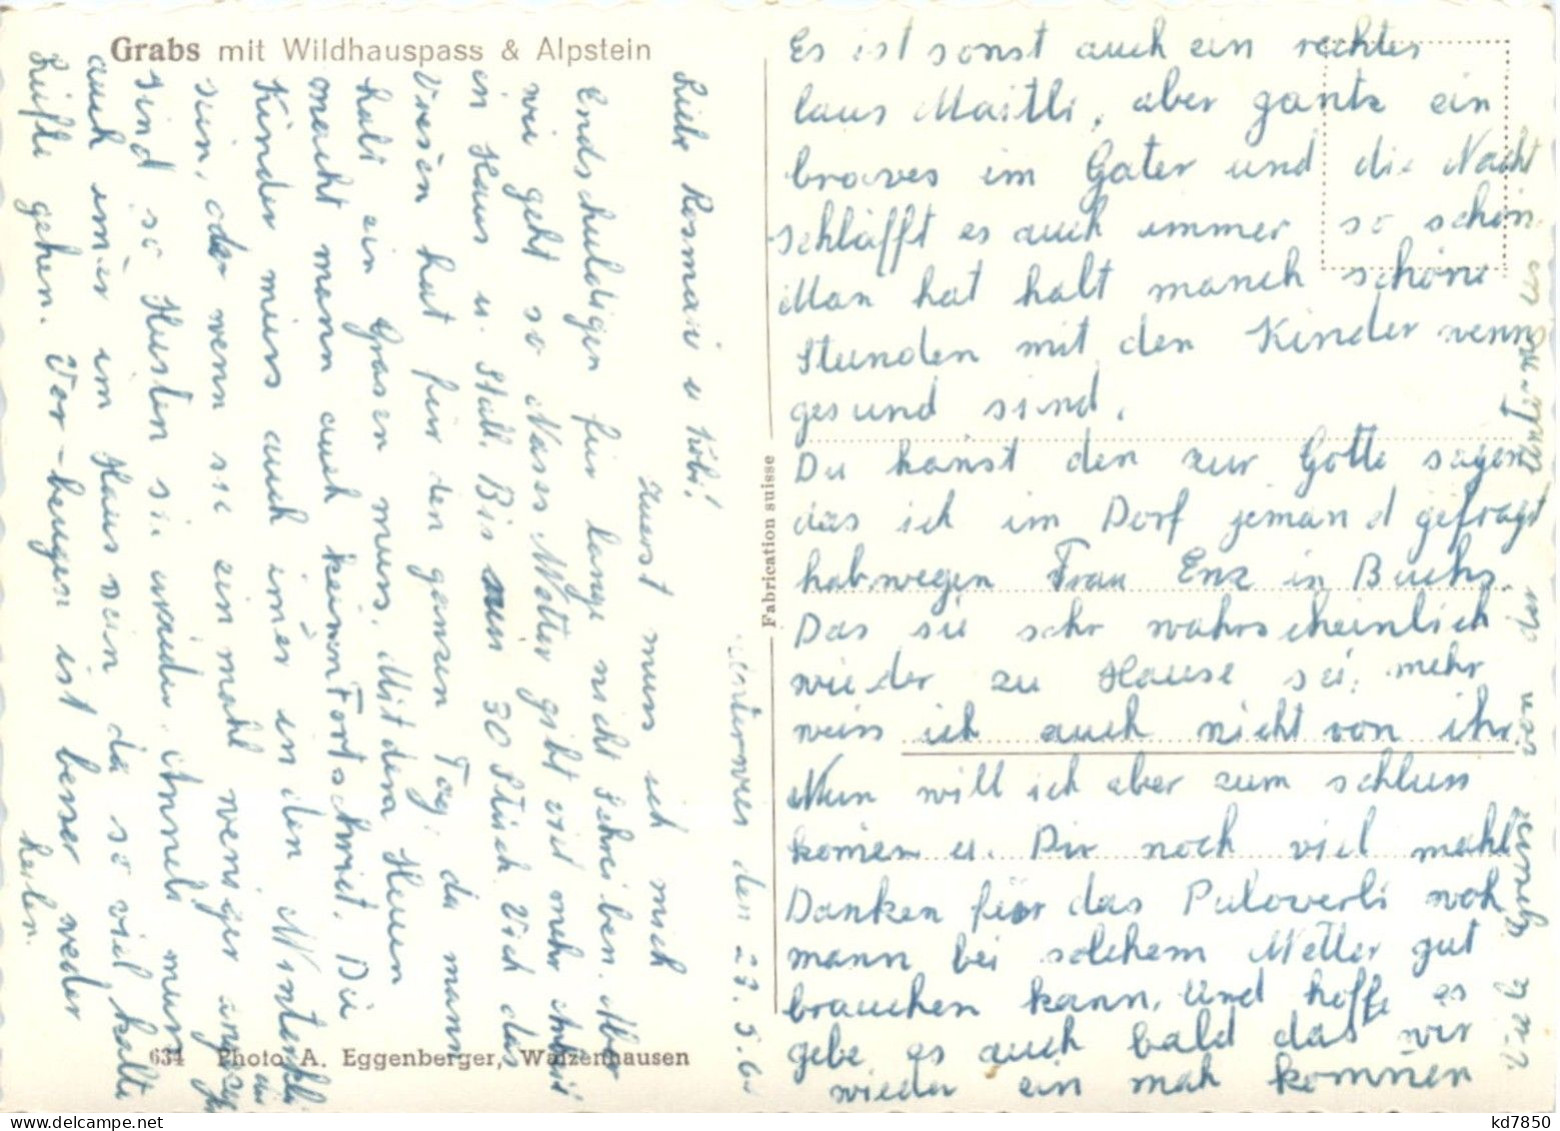 Grabs mit Wildhauspass & Alpstein
den 23.5.6
Liebe Rosmari u Köbi!
Zuerst muss ich mich
Endschuldigen für lange nicht Schreiben. Aber
wie geht so Nasses Wetter gibt viel mehr
in Haus u. Stall. Bis 30 Stück Vieh das
Fresen hat für den ganzen Tag: da mann
halt ein Grasen muss. Mit dem Heuen
macht mann auch keinen Fortschriet. Die
Kinder müss auch imer in den
sein, oder wenn sie ein mahl weniger
sind so Husten sie wieder. Anneli muss
auch imer im Haus sein da so viel kalte
Lüfte gehen. Vor-beugen ist besser weder
heilen.
Es ist sonst auch ein rechtes
laus Maitli, aber gantz ein
braves im Gater und die Nacht
schläfft es auch immer so schön.
Man hat halt manch schöne
Stunden mit den Kinder wenn
gesund sind.
Du kanst den zur Gotte sagen
das ich im Dorf jemand gefragt
hab wegen Frau Enz in Buchs.
Das sie sehr wahrscheinlich
wieder zu Hause sei, mehr
weiss ich auch nicht von ihr
Nun will ich aber zum schluss
komen u. Dir noch viel mahl
Danken für das Puloverli woh
mann bei solchem Wetter gut
brauchen kann. Und hoffe es
gebe es auch bald das wir
wieder ein mah kommen
Fabrication suisse
634 Photo A. Eggenberger, Walzenhausen
kd7850